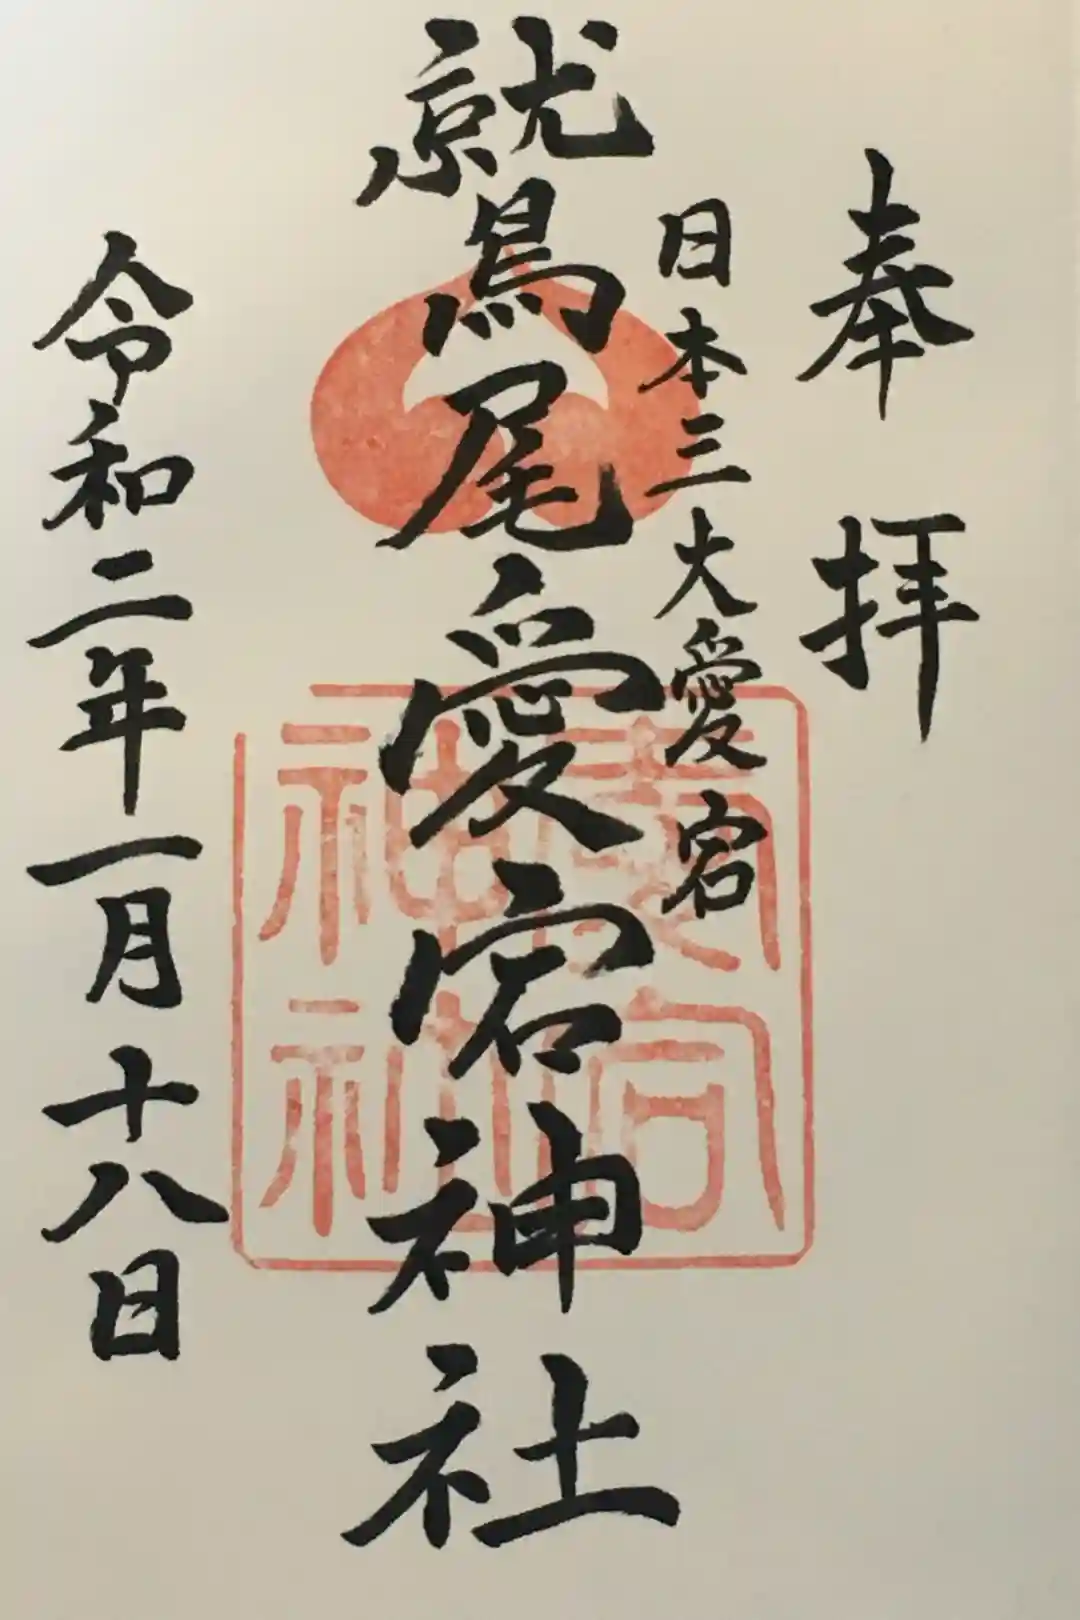 奉拝
日本三大愛宕
鷲尾愛宕神社
令和二年一月十八日
愛宕神社